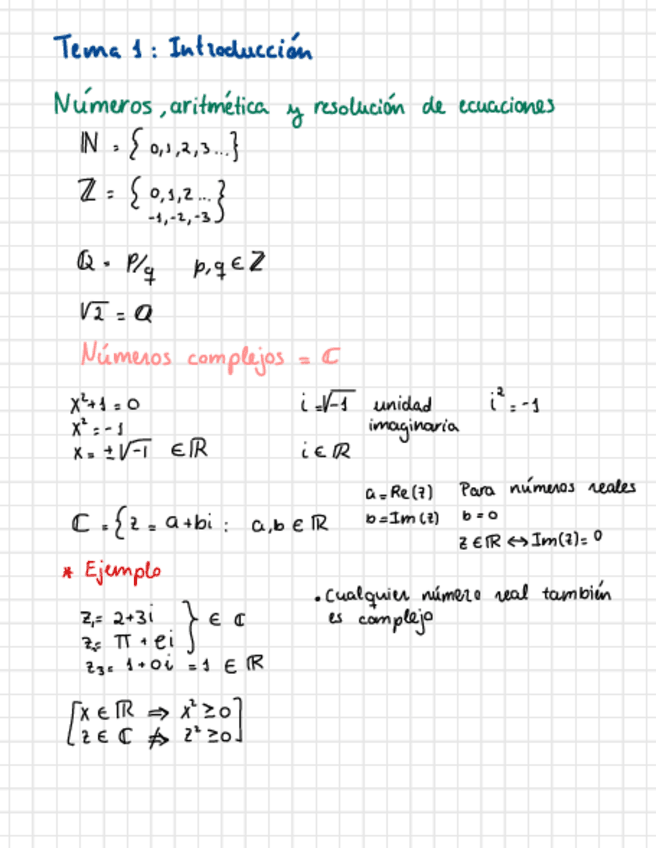 Tema 1: Introducción
Números, aritmética y resolución de ecuaciones
ℕ = { 0,1,2,3...}
ℤ = { 0,1,2...
-1,-2,-3 }
ℚ = p/q p,q ∈ ℤ
√2 = Q
Números complejos = ℂ
x²+1 = 0
x² = -1
x = ±√-1 ∈ ℝ
i = √-1 unidad imaginaria i² = -1
i ∈ ℝ
ℂ = { z = a+bi : a,b ∈ ℝ
a = Re(z)
b = Im(z)
Para números reales
b = 0
z ∈ ℝ ↔ Im(z) = 0
* Ejemplo
z₁ = 2+3i
z₂ = π + ei } ∈ ℂ
z₃ = 1+0i = 1 ∈ ℝ
• Cualquier número real también
es complejo
[x ∈ ℝ ⇒ x² ≥ 0
z ∈ ℂ ⇏ z² ≥ 0]